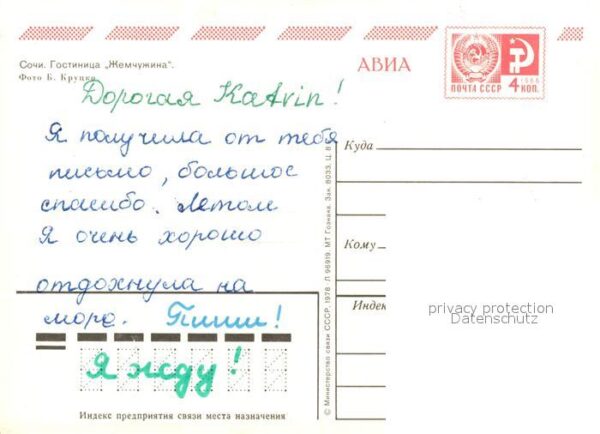 Сочи. Гостиница „Жемчужина“.
Фото Б. Крупко
АВИА
ПОЧТА СССР
1966
4 КОП.
Дорогая Katrin!
Я получила от тебя
письмо, большое
спасибо. Летом
Я очень хорошо
отдохнула на
море. Пиши!
Я жду!
Куда
Кому
Индек
privacy protection
Datenschutz
Индекс предприятия связи места назначения
© Министерство связи СССР, 1978. Л 96919. МТ Гознака. Зак. 8033. Ц. 8